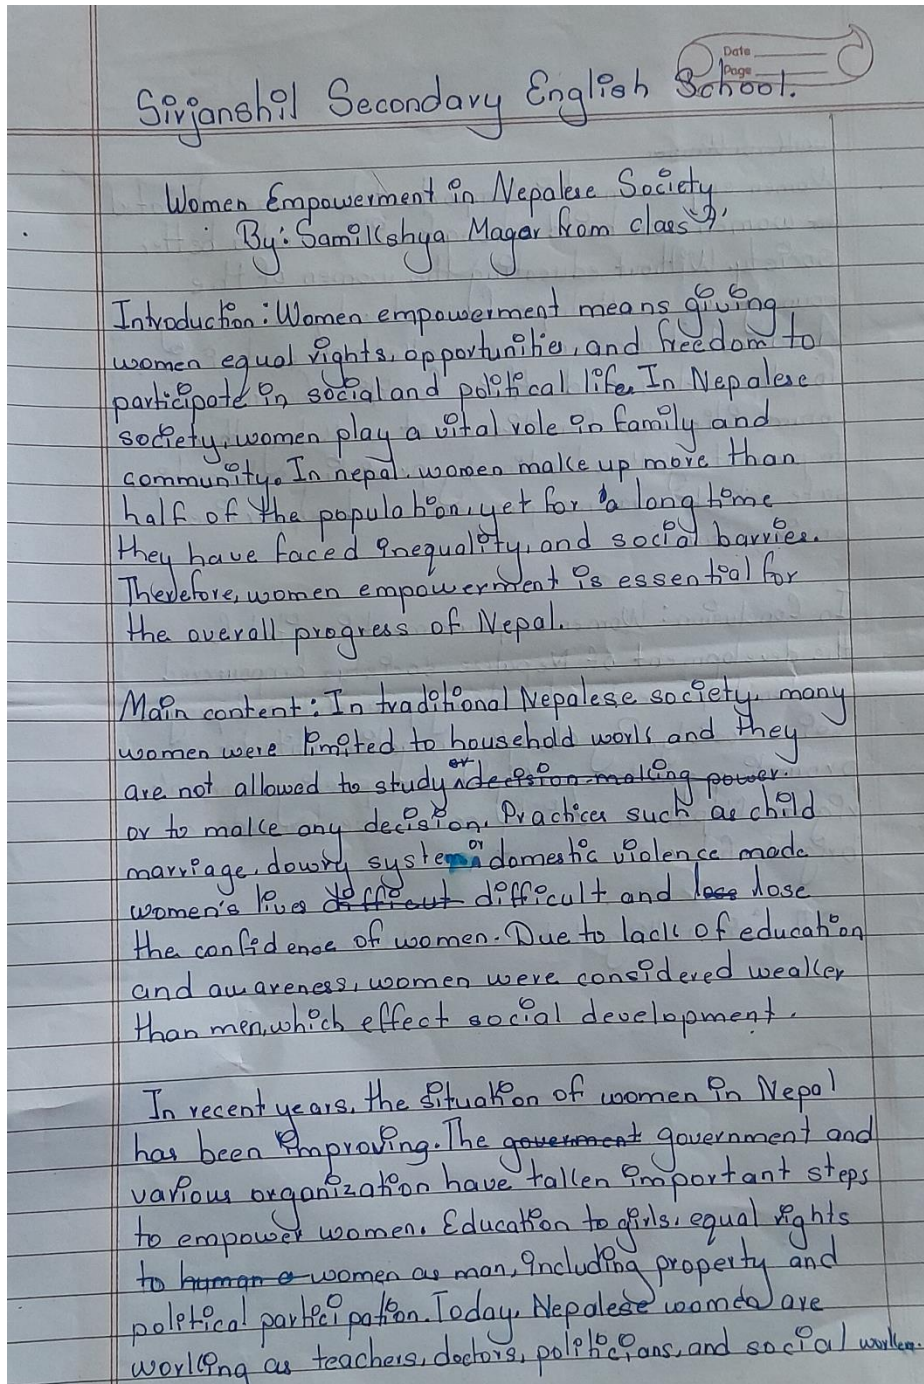 Date
Page
Sirjanshil Secondary English School.
Women Empowerment in Nepalese Society
By: Samikshya Magar from class '9'
Introduction: Women empowerment means giving
women equal rights, opportunitie, and freedom to
participate in social and political life. In Nepalese
society, women play a vital role in family and
community. In nepal, women make up more than
half of the population, yet for a long time
they have faced inequality, and social barries.
Therefore, women empowerment is essential for
the overall progress of Nepal.
Main content: In traditional Nepalese society, many
women were limited to household work and they
are not allowed to study or decision-making power.
or to make any decision. Practices such as child
marriage, dowry system or domestic violence made
women's lives difficut difficult and loss lose
the confidence of women. Due to lack of education
and awareness, women were considered weaker
than men, which effect social development.
In recent years, the situation of women in Nepal
has been improving. The goverment government and
various organization have taken important steps
to empower women. Education to girls, equal rights
to human women as man, including property and
political participation. Today, Nepalese women are
working as teachers, doctors, politicians, and social worker.